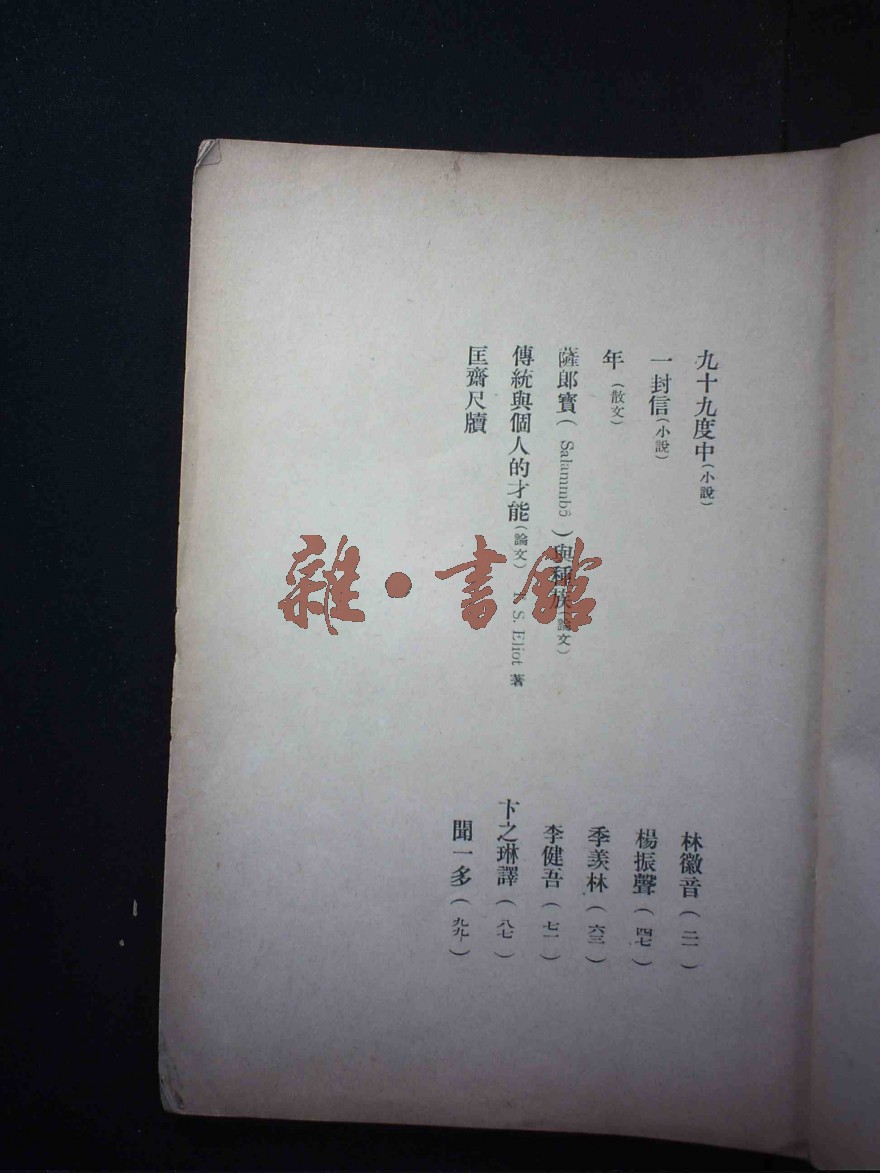 九十九度中(小說) 林徽音(二一)
一封信(小說) 楊振聲(四七)
年(散文) 季羨林(六三)
薩郎寶(Salammbô)與種族(論文) 李健吾(七一)
傳統與個人的才能(論文) T. S. Eliot 著 卞之琳譯(八七)
匡齋尺牘 聞一多(九九)
雜·書館